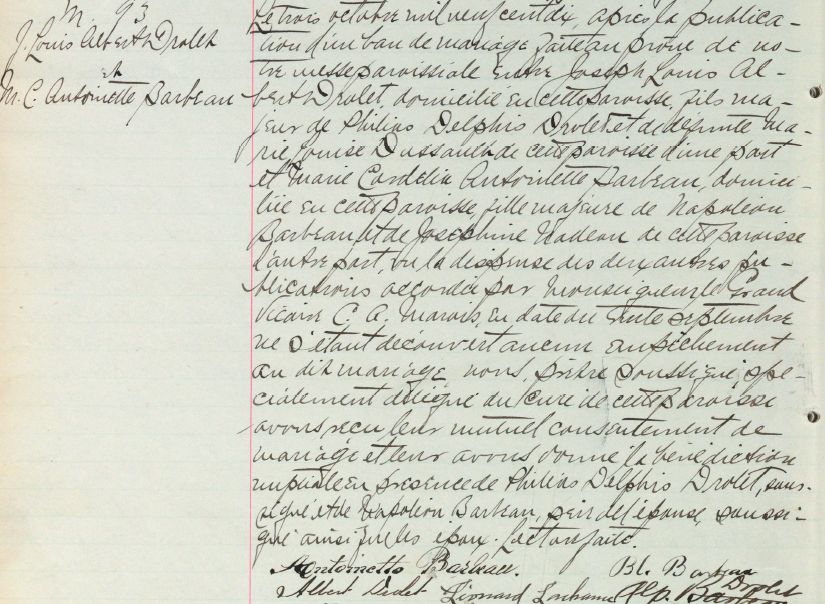 M 93
J. Louis Albert Drolet
et
M. C. Antoinette Barbeau
Le trois octobre mil neuf cent dix, après la publica-
tion d'un ban de mariage faite au prône de no-
tre messe paroissiale entre Joseph Louis Al-
bert Drolet, domicilié en cette paroisse, fils ma-
jeur de Philias Delphis Drolet et de défunte Ma-
rie Louise Dussault de cette paroisse d'une part
et Marie Cordelia Antoinette Barbeau, domici-
liée en cette paroisse, fille majeure de Napoléon
Barbeau et de Josephine Nadeau de cette paroisse
d'autre part, vu la dispense des deux autres pu-
blications accordée par Monseigneur le Grand
Vicaire C. A. Marois, en date du trente septembre
ne s'étant découvert aucun empêchement
au dit mariage, nous, prêtre soussigné, spé-
cialement délégué du curé de cette paroisse
avons reçu leur mutuel consentement de
mariage et leur avons donné la bénédiction
nuptiale en présence de Philias Delphis Drolet, sous-
signé et de Napoléon Barbeau, père de l'épouse, soussi-
gné ainsi que les époux. Lecture faite.
Antoinette Barbeau. Bl. Barbeau
Albert Drolet Léonard Drolet